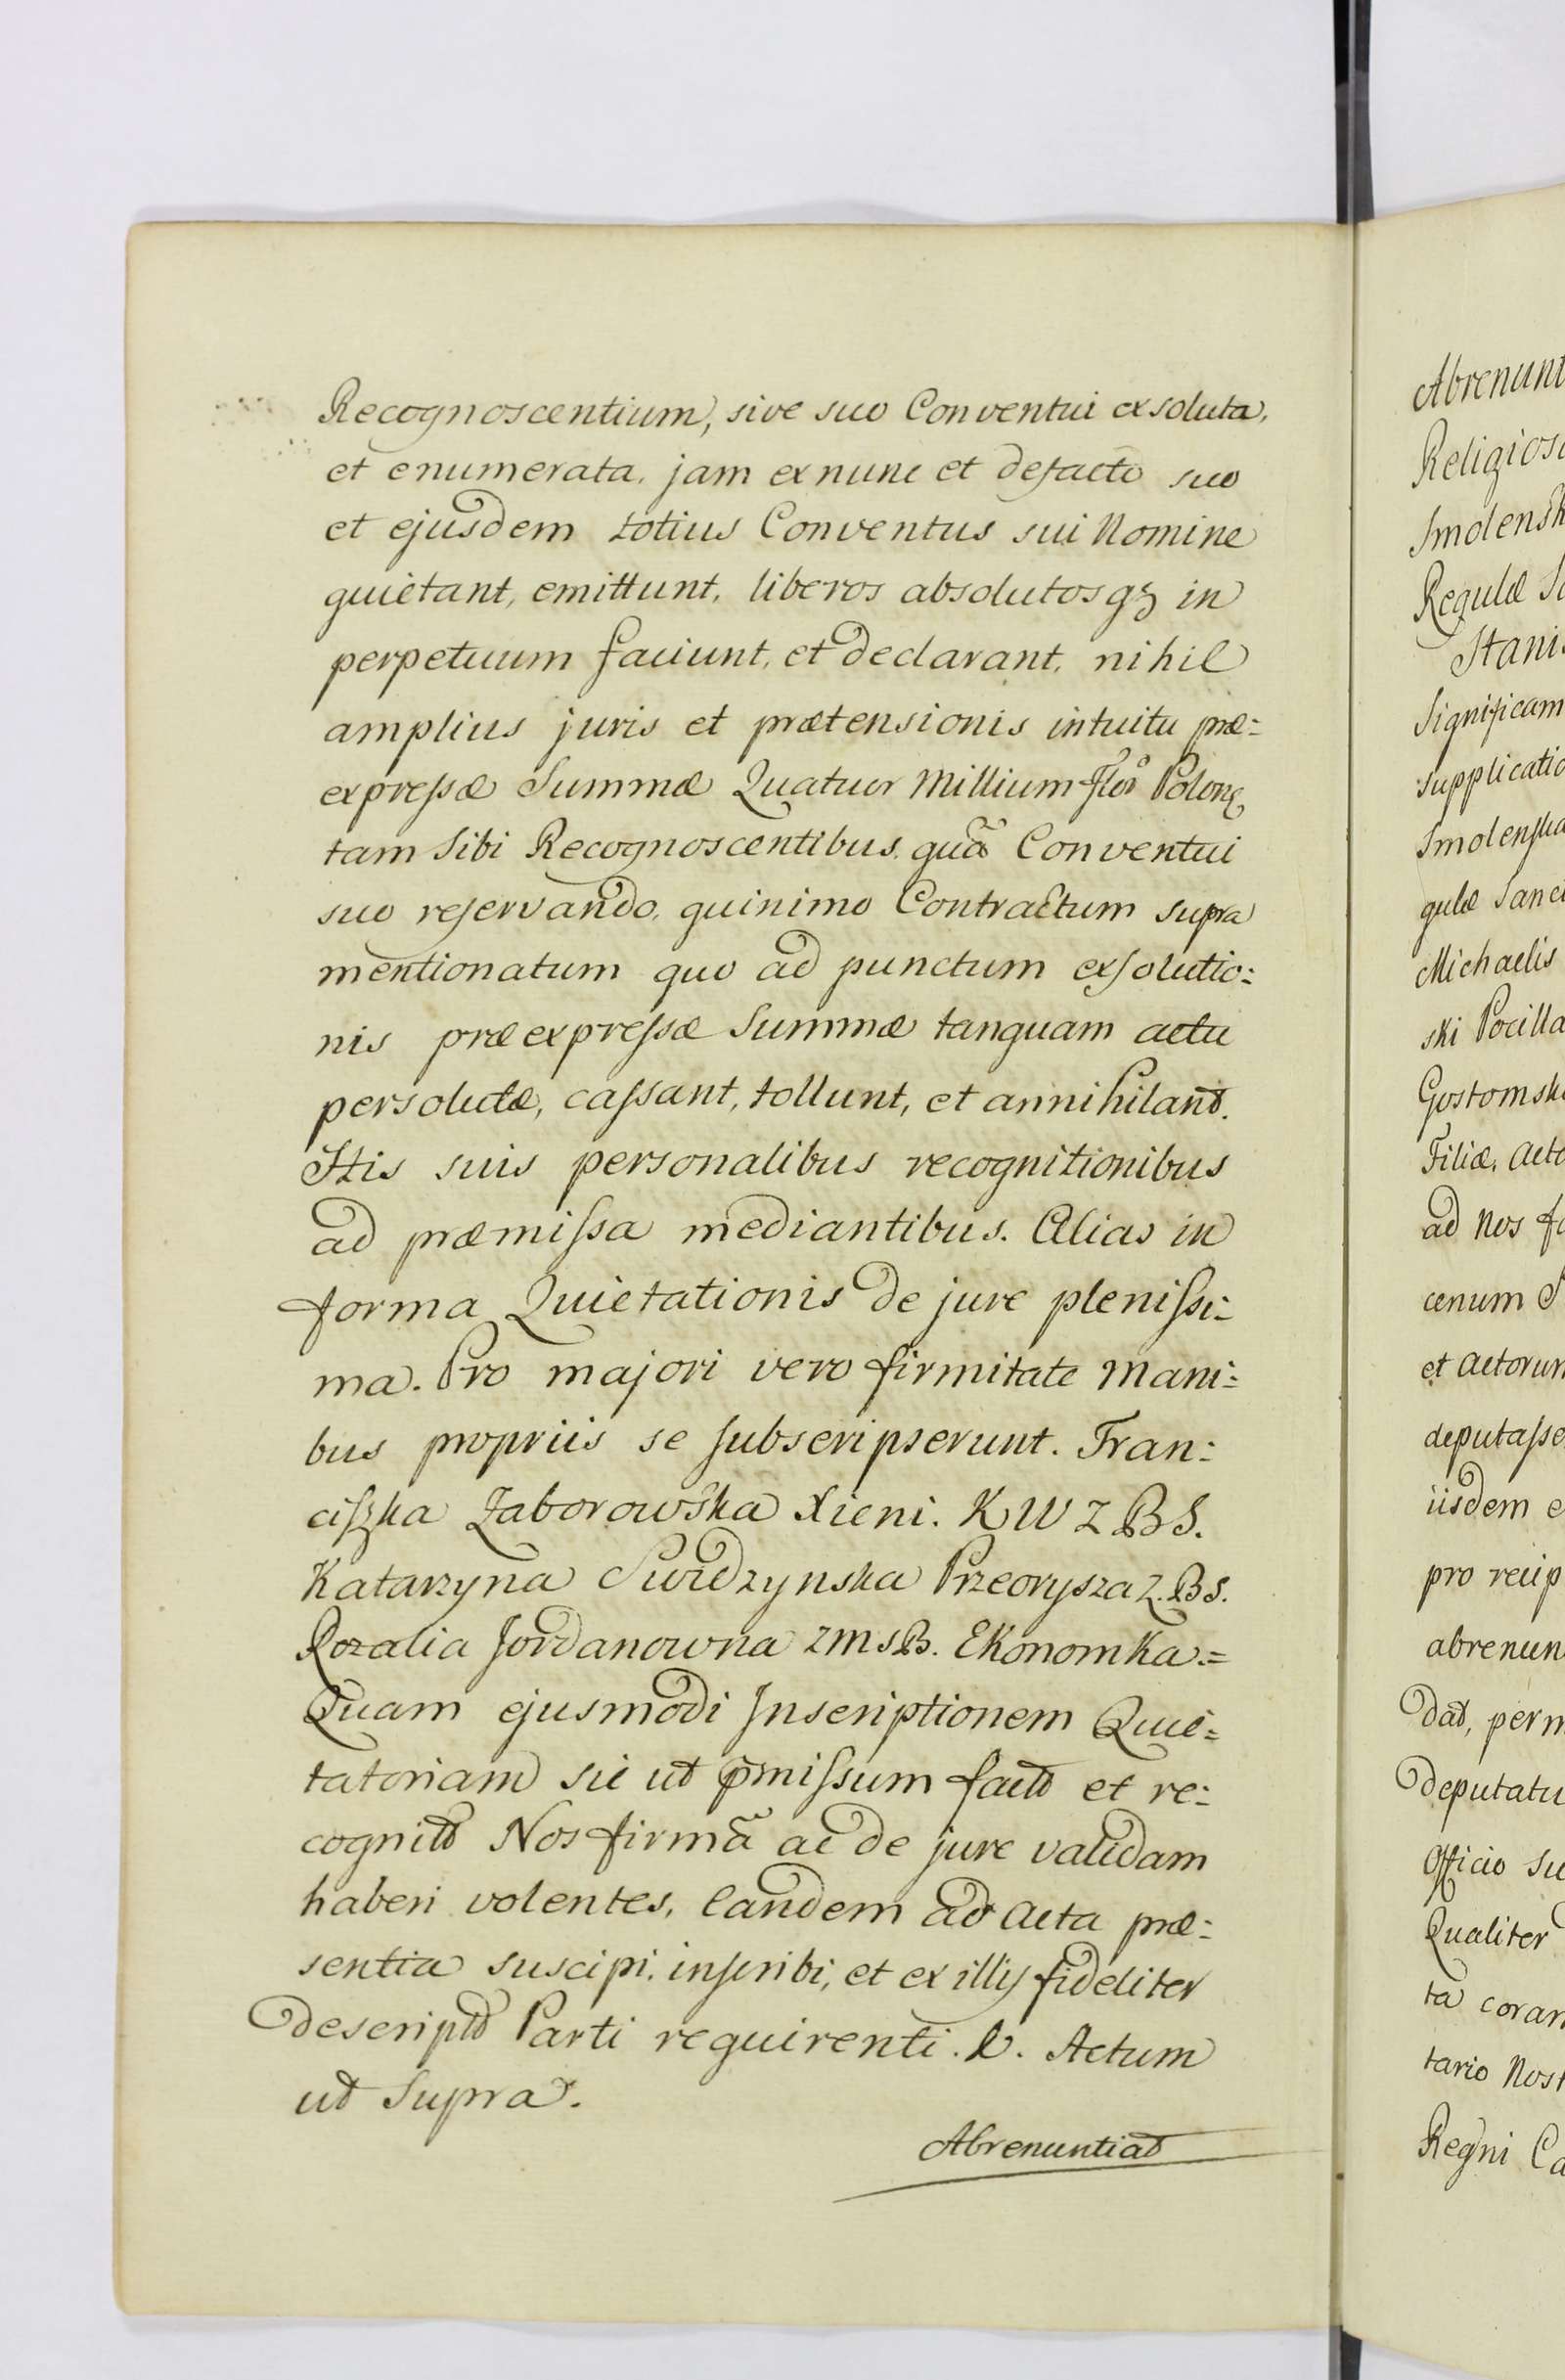 Recognoscentium, sive suo Conventui exsoluta,
et enumerata, jam ex nunc et defacto suo
et ejusdem totius Conventus sui Nomine
quietant, emittunt, liberos absolutosqꝫ in
perpetuum faciunt, et declarant, nihil
amplius juris et prætensionis intuitu præ=
expressæ Summæ Quatuor Millium flor Polon
tam sibi Recognoscentibus quã Conventui
suo reservando, quinimo Contractum supra
mentionatum quo ad punctum exsolutio=
nis præexpressæ Summæ tanquam actu
persolutæ, cassant, tollunt, et annihilant.
Htis suis personalibus recognitionibus
ad præmissa mediantibus. Alias in
forma Quietationis de jure plenissi=
ma. Pro majori vero firmitate Mani=
bus propriis se subscripserunt. Fran=
ciszka Zaborowska Xieni. K W Z B S.
Katarzyna Swidzynska Przeorysza Z. B S.
Rozalia Jordanowna Z M S B. Ekonomka.=
Quam ejusmodi Inscriptionem Quie=
tatoriam sic ut p̃missum fact et re=
cognit Nos firmã ac de jure validam
haberi volentes, Eandem ad Acta præ=
sentia suscipi, inscribi, et ex illis fideliter
descript Parti requirenti. Actum
ut Supra.
Abrenuntiat
Abrenunt
Religios
Smolensk
Regulæ S
Stani
Significam
supplicatio
Smolenska
gulæ Sanct
Michaelis
ski Pocilla
Gostomsk
Filiæ, Acto
ad Nos f
cenum S
et Actorum
deputasse
iisdem e
pro recip
abrenun
dat, perm
deputatu
Officio Su
Qualiter
ta coram
tario Nost
Regni Ca